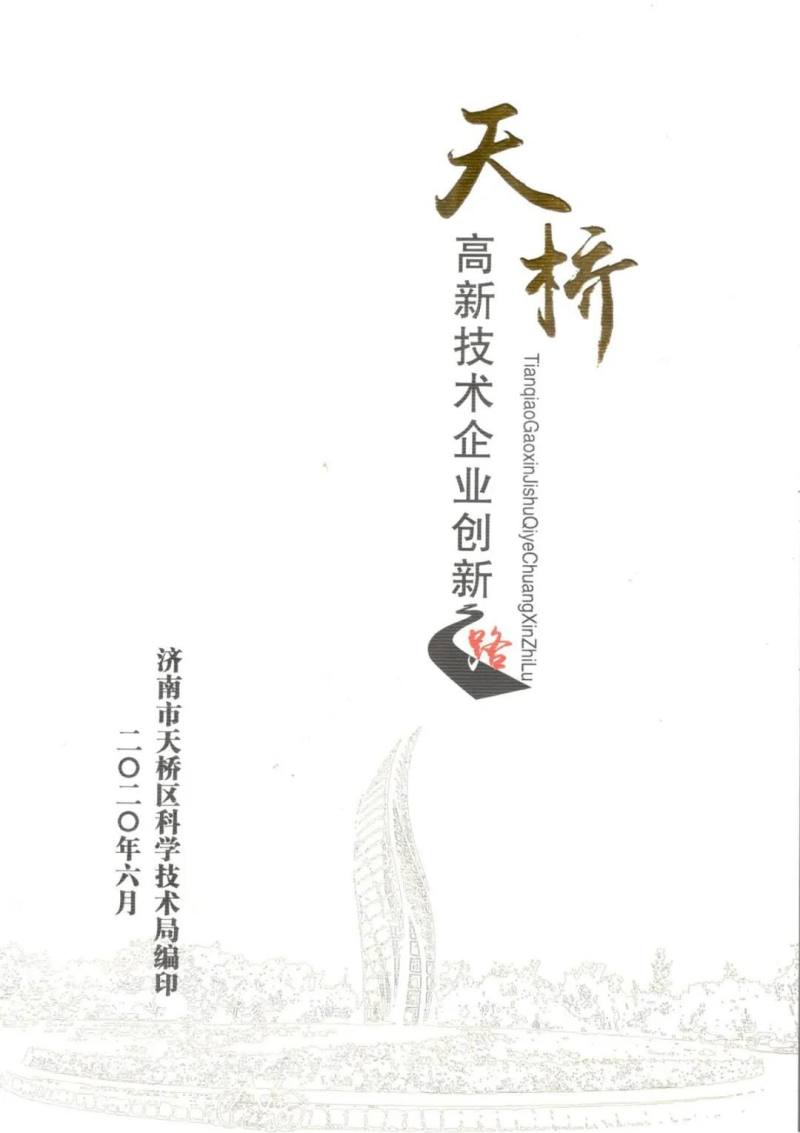 天桥
高新技术企业创新之路
TianqiaoGaoxinJishuQiyeChuangXinZhiLu
济南市天桥区科学技术局编印
二〇二〇年六月